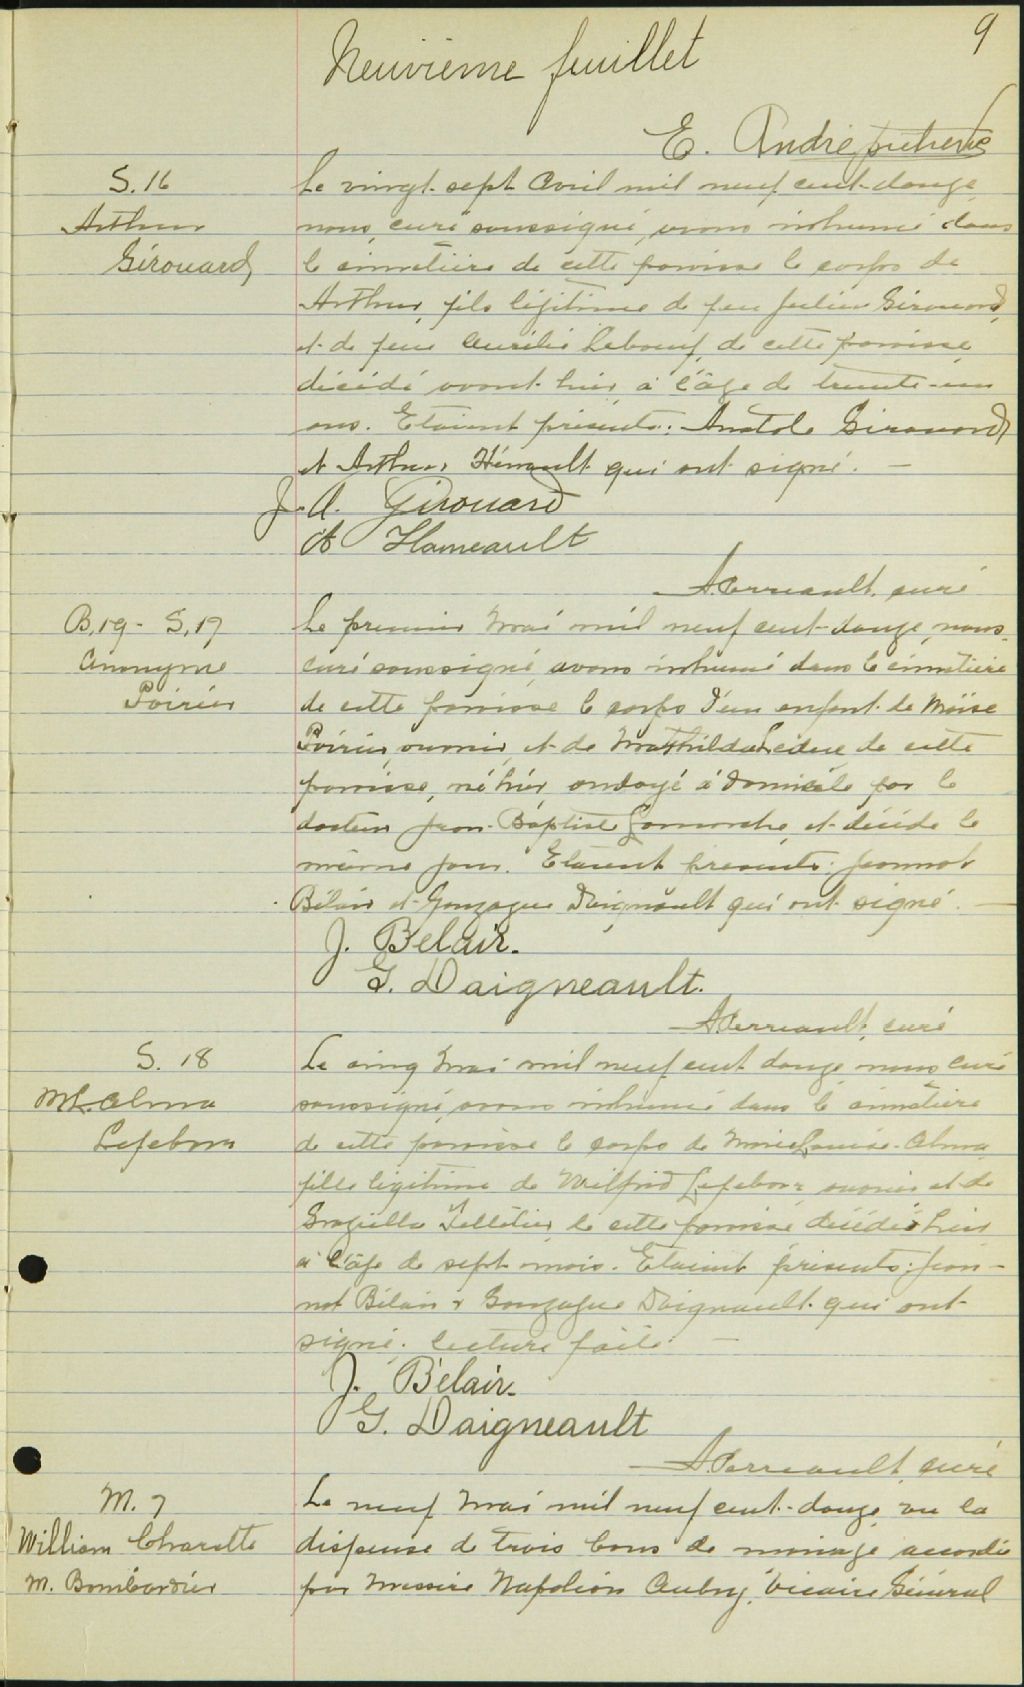 9
Neuvième feuillet
E. André
S. 16
Arthur
Girouard,
Le vingt-sept Avril mil neuf cent-douze,
nous, curé soussigné, avons inhumé dans
le cimetière de cette paroisse le corps de
Arthur, fils légitime de feu Julien Girouard,
et de feue Aurélie Leboeuf, de cette paroisse,
décédé avant-hier, à l'âge de trente-un
ans. Etaient présents: Anatole Girouard
et Arthur Hénault qui ont signé. —
J. A. Girouard
A Hameault
A. Perreault, curé
B. 19 - S. 17
Anonyme
Poirier
Le premier Mai mil neuf cent-douze, nous,
curé soussigné, avons inhumé dans le cimetière
de cette paroisse le corps d'un enfant de Moïse
Poirier, ouvrier, et de Mathilda Leduc de cette
paroisse, né hier, ondoyé à domicile par le
docteur Jean-Baptiste Lamarche, et décédé le
même jour. Etaient présents: Jeannot
Bélair et Gonzague Daignault qui ont signé. —
J. Bélair.
G. Daigneault.
A. Perreault, curé
S. 18
M. L. Alma
Lefebvre
Le cinq Mai mil neuf cent douze, nous, curé
soussigné, avons inhumé dans le cimetière
de cette paroisse le corps de Marie Louise-Alma,
fille légitime de Wilfrid Lefebvre, ouvrier et de
Graziella Pelletier, de cette paroisse, décédée hier
à l'âge de sept mois. Etaient présents: Jean-
not Bélair & Gonzague Daignault qui ont
signé. lecture faite. —
J. Bélair.
G. Daigneault
A. Perreault, curé
M. 7
William Charette
M. Bombardier
Le neuf Mai mil neuf cent-douze, vu la
dispense de trois bans de mariage accordée
par Messire Napoléon Aubry, Vicaire Général